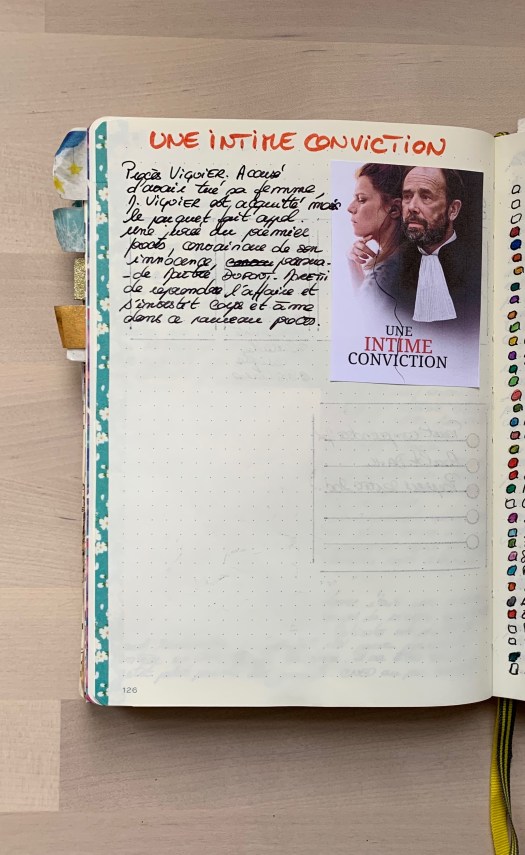 UNE INTIME CONVICTION
Procès VIGUIER. Accusé
d'avoir tué sa femme,
J. VIGUIER est acquitté mais
le parquet fait appel.
une jurée du premier
procès, convaincue de son
innocence, persua-
-de Maître DUPONT. MORETTI
de reprendre l'affaire et
s'investit corps et âme
dans ce nouveau procès.
UNE
INTIME
CONVICTION
126